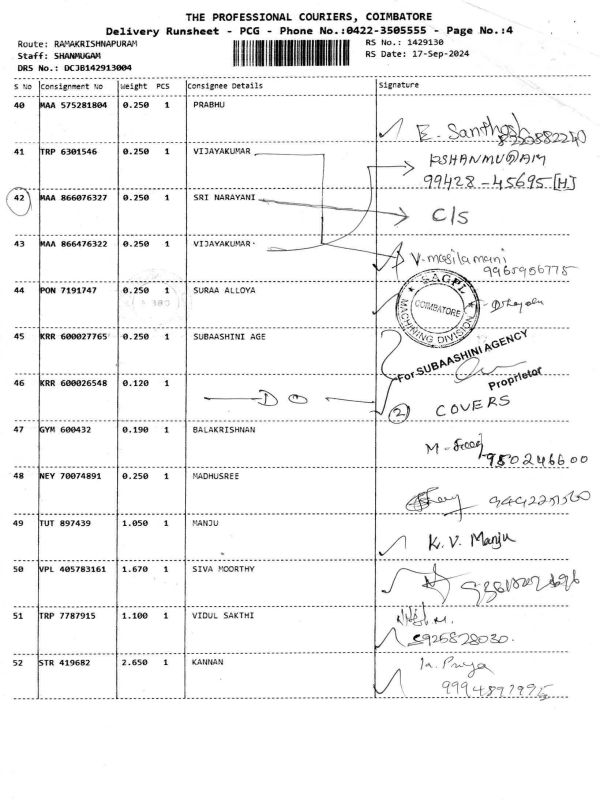 THE PROFESSIONAL COURIERS, COIMBATORE
Delivery Runsheet - PCG - Phone No.:0422-3505555 - Page No.:4
Route: RAMAKRISHNAPURAM RS No.: 1429130
Staff: SHANMUGAM RS Date: 17-Sep-2024
DRS No.: DCJB142913004
S No Consignment No Weight PCS Consignee Details Signature
40 MAA 575281804 0.250 1 PRABHU
E. Santhosh
41 TRP 6301546 0.250 1 VIJAYAKUMAR
99428-45695 [H]
42 MAA 866076327 0.250 1 SRI NARAYANI C/S
43 MAA 866476322 0.250 1 VIJAYAKUMAR
V. masilamani
9965956775
44 PON 7191747 0.250 1 SURAA ALLOYA
SAGPL
COIMBATORE
MACHINING DIVISION
45 KRR 600027765 0.250 1 SUBAASHINI AGE
For SUBAASHINI AGENCY
Proprietor
46 KRR 600026548 0.120 1
DO
2 COVERS
47 GYM 600432 0.190 1 BALAKRISHNAN
48 NEY 70074891 0.250 1 MADHUSREE
49 TUT 897439 1.050 1 MANJU
K. V. Manju
50 VPL 405783161 1.670 1 SIVA MOORTHY
51 TRP 7787915 1.100 1 VIDUL SAKTHI
8925828030.
52 STR 419682 2.650 1 KANNAN
Priya